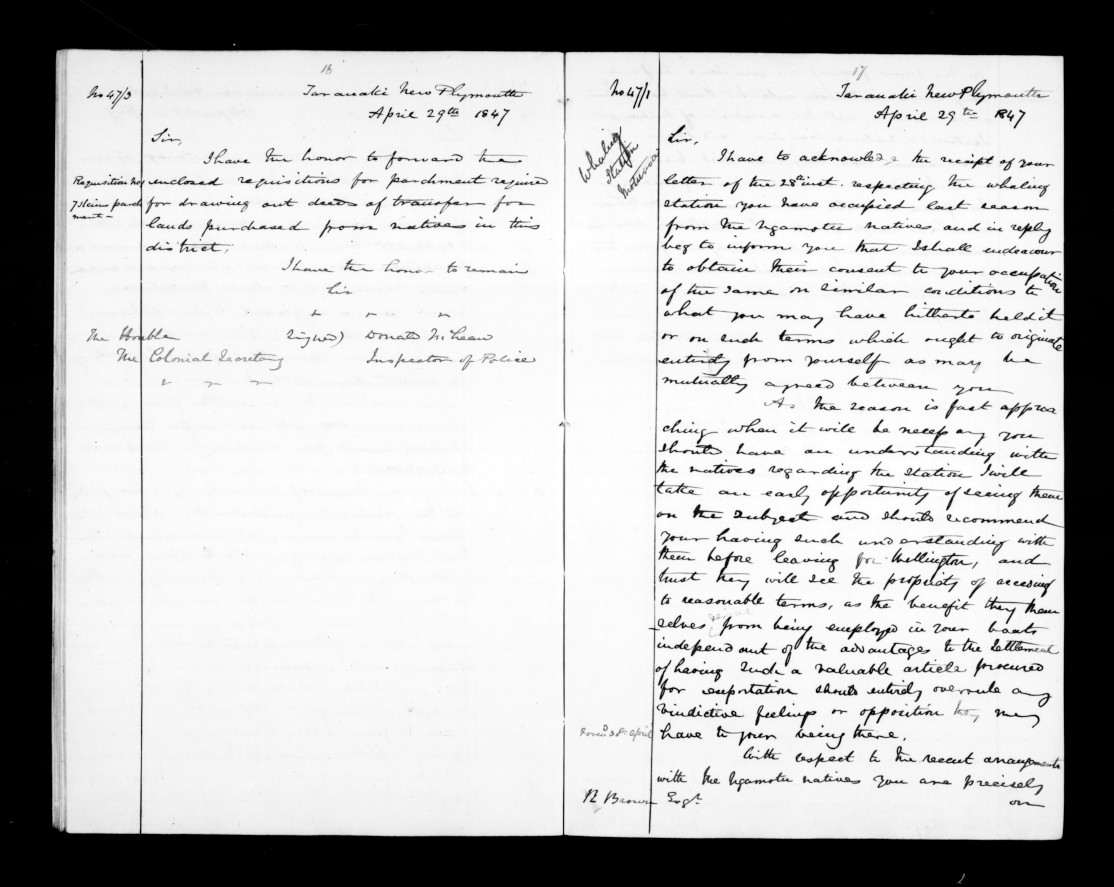 16
No 47/3
Taranaki New Plymouth
April 29th 1847
Sir,
I have the honor to forward the
Requisition for
7 skins parch
ment -
enclosed requisitions for parchment required
for drawing out deeds of transfer for
lands purchased from natives in this
district.
I have the honor to remain
Sir
" " "
The Honble
The Colonial Secretary
" " "
Signed) Donald McLean
Inspector of Police
17
No 47/1
Taranaki New Plymouth
April 29th 1847
Whaling
Station
Moturoa
Sir,
I have to acknowledge the receipt of your
letter of the 28th inst. respecting the whaling
station you have occupied last season
from the Ngamotu natives, and in reply
beg to inform you that I shall endeavour
to obtain their consent to your occupation
of the same on similar conditions to
what you may have hitherto held it
or on such terms which ought to originate
entirely from yourself as may be
mutually agreed between you
As the season is fast approa
ching when it will be necessary you
should have an understanding with
the natives regarding the station I will
take an early opportunity of seeing them
on the subject and should recommend
your having such understanding with
them before leaving for Wellington, and
trust they will see the propriety of acceding
to reasonable terms, as the benefit they them
selves derive from being employed in your boats
independant of the advantages to the Settlement
of having such a valuable article procured
for exportation should entirely overrule any
vindictive feelings or opposition they may
have to your being there.
April
With respect to the recent arrangements
with the Ngamotu natives you are precisely
on
Brown Esqr